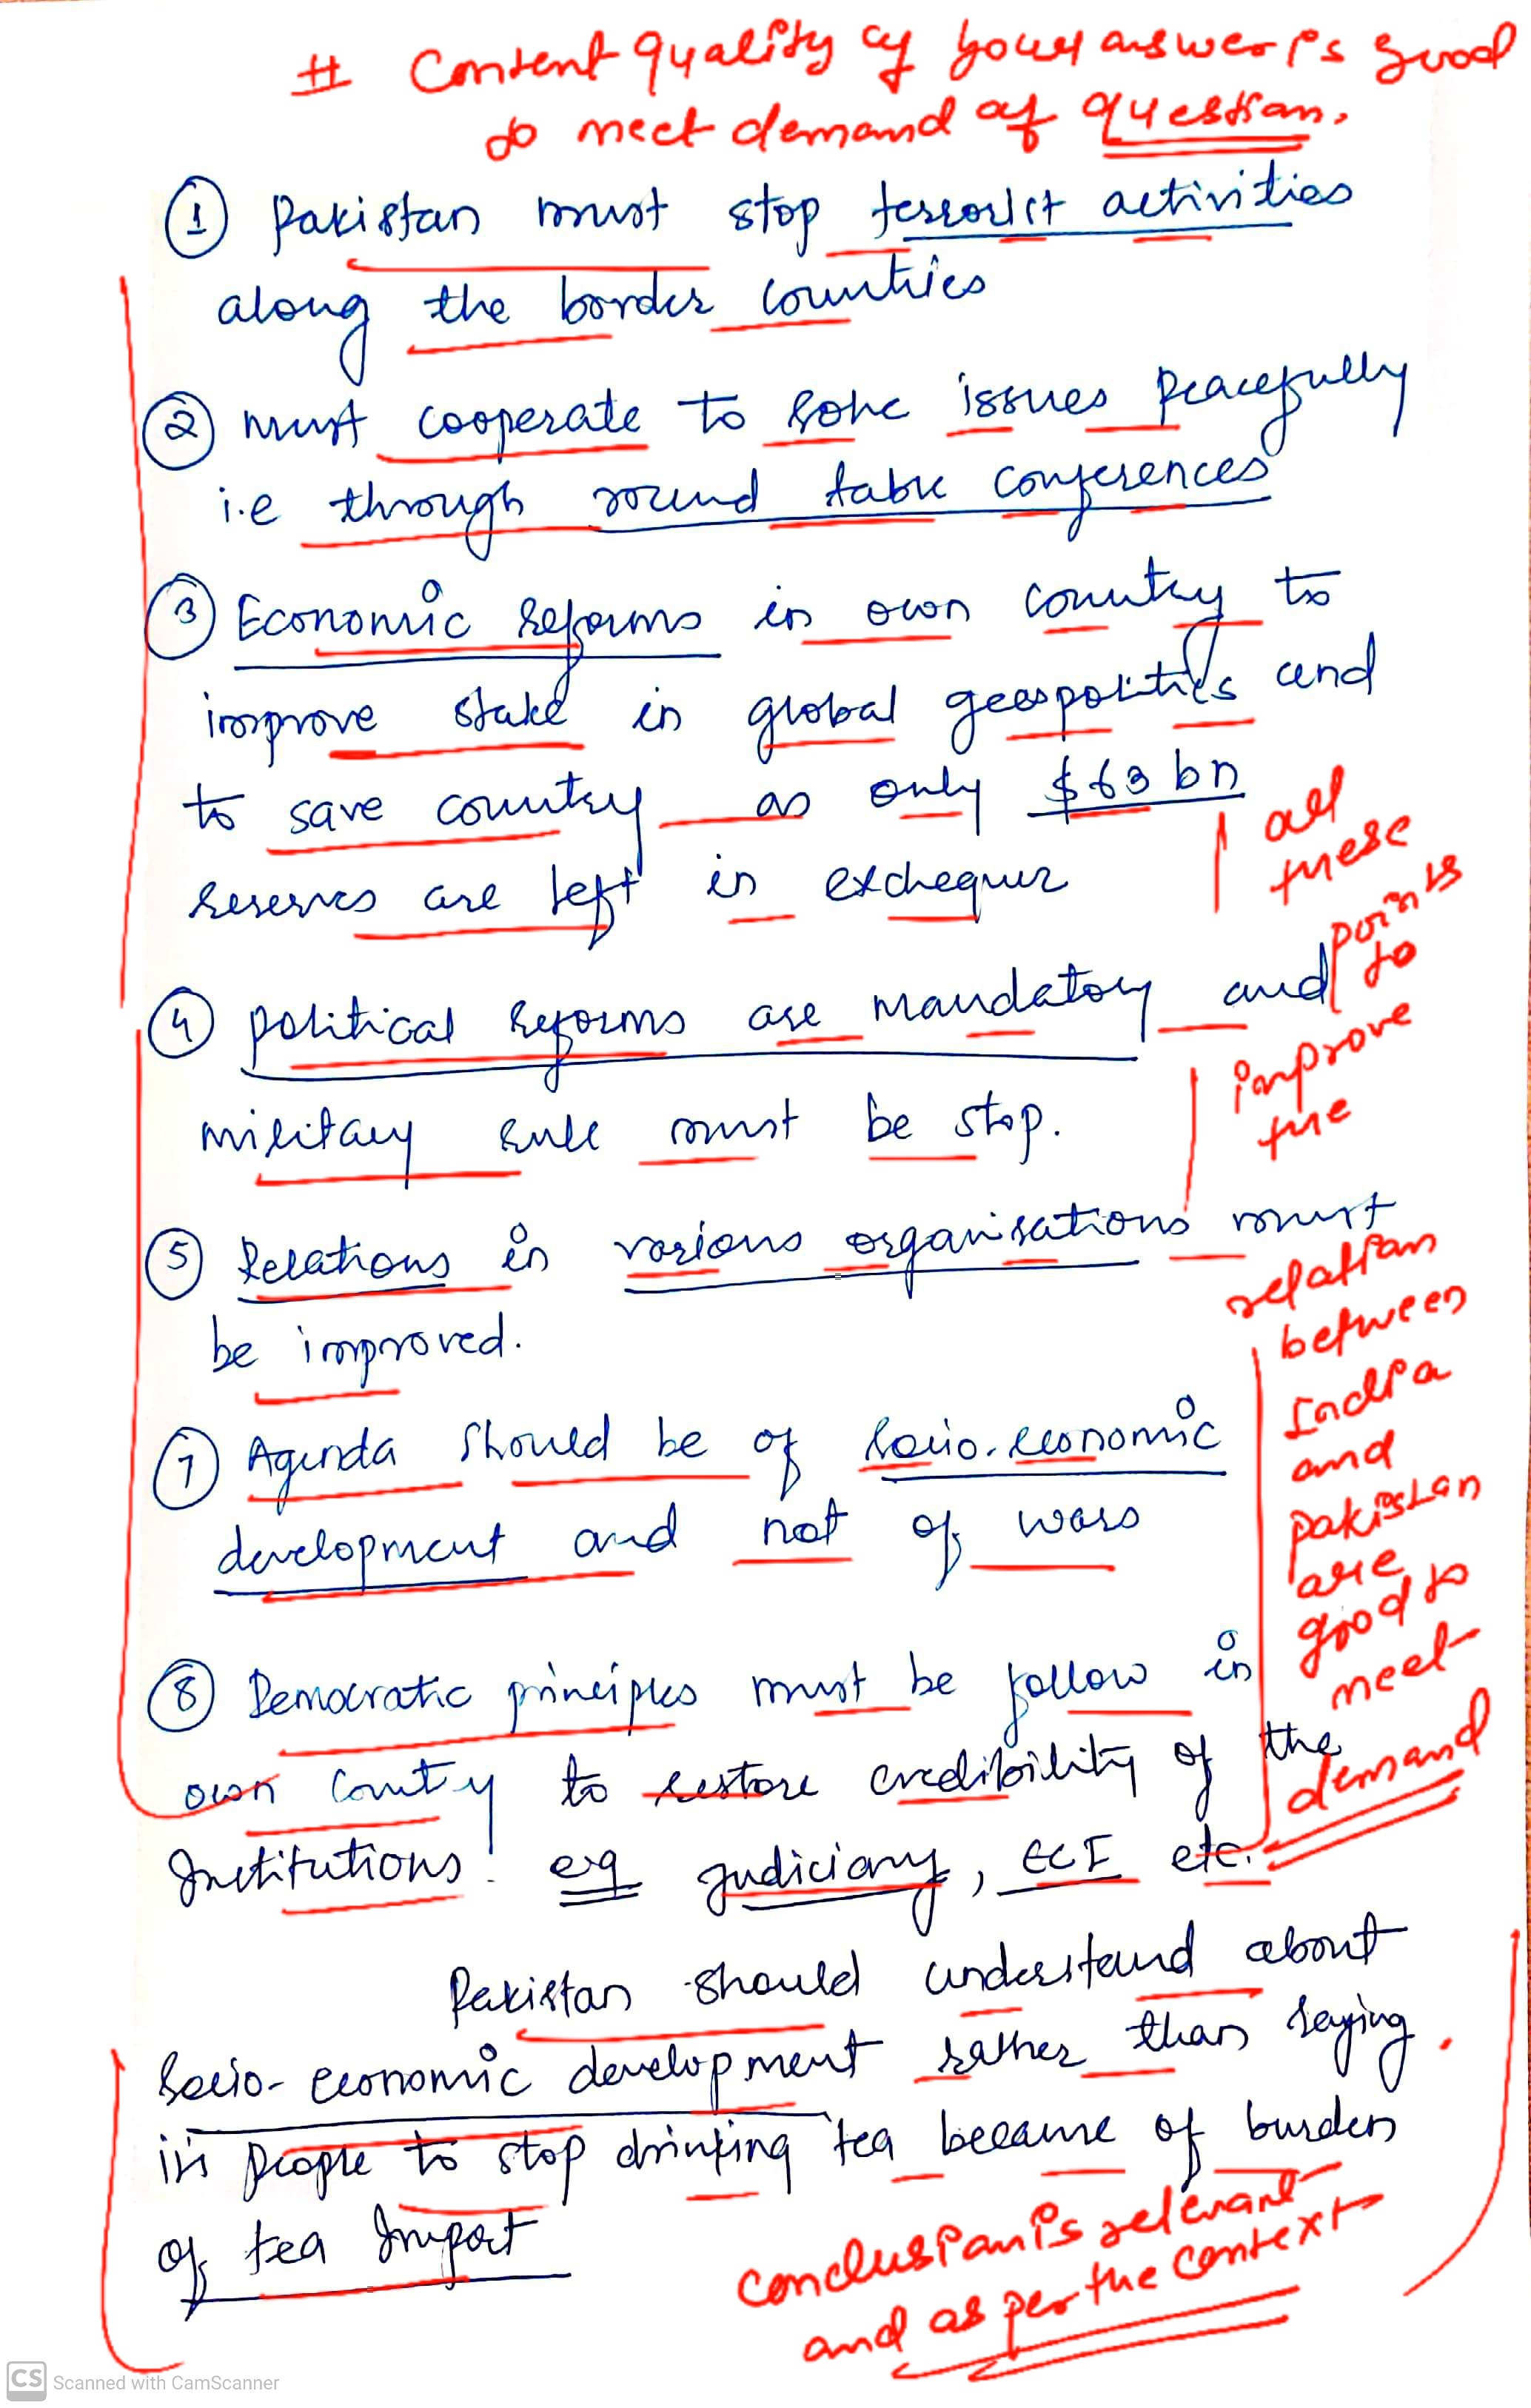 # Content quality of your answer is good
to meet demand of question.
① Pakistan must stop terrorist activities
along the border countries
② must cooperate to solve issues peacefully
i.e through round table conferences
③ Economic reforms in own country to
improve stake in global geopolitics and
to save country as only $63 bn
reserves are left in exchequer
④ political reforms are mandatory and
military rule must be stop.
⑤ Relations in various organisations must
be improved.
⑦ Agenda should be of socio-economic
development and not of wars
⑧ Democratic principles must be follow in
own country to restore credibility of the
Institutions. eg judiciary, ECI etc.
all
these
points
to
improve
the
relation
between
India
and
pakistan
are
good to
meet
demand
Pakistan should understand about
socio-economic development rather than saying
its people to stop drinking tea because of burden
of tea Import
conclusion is relevant
and as per the context
CS Scanned with CamScanner